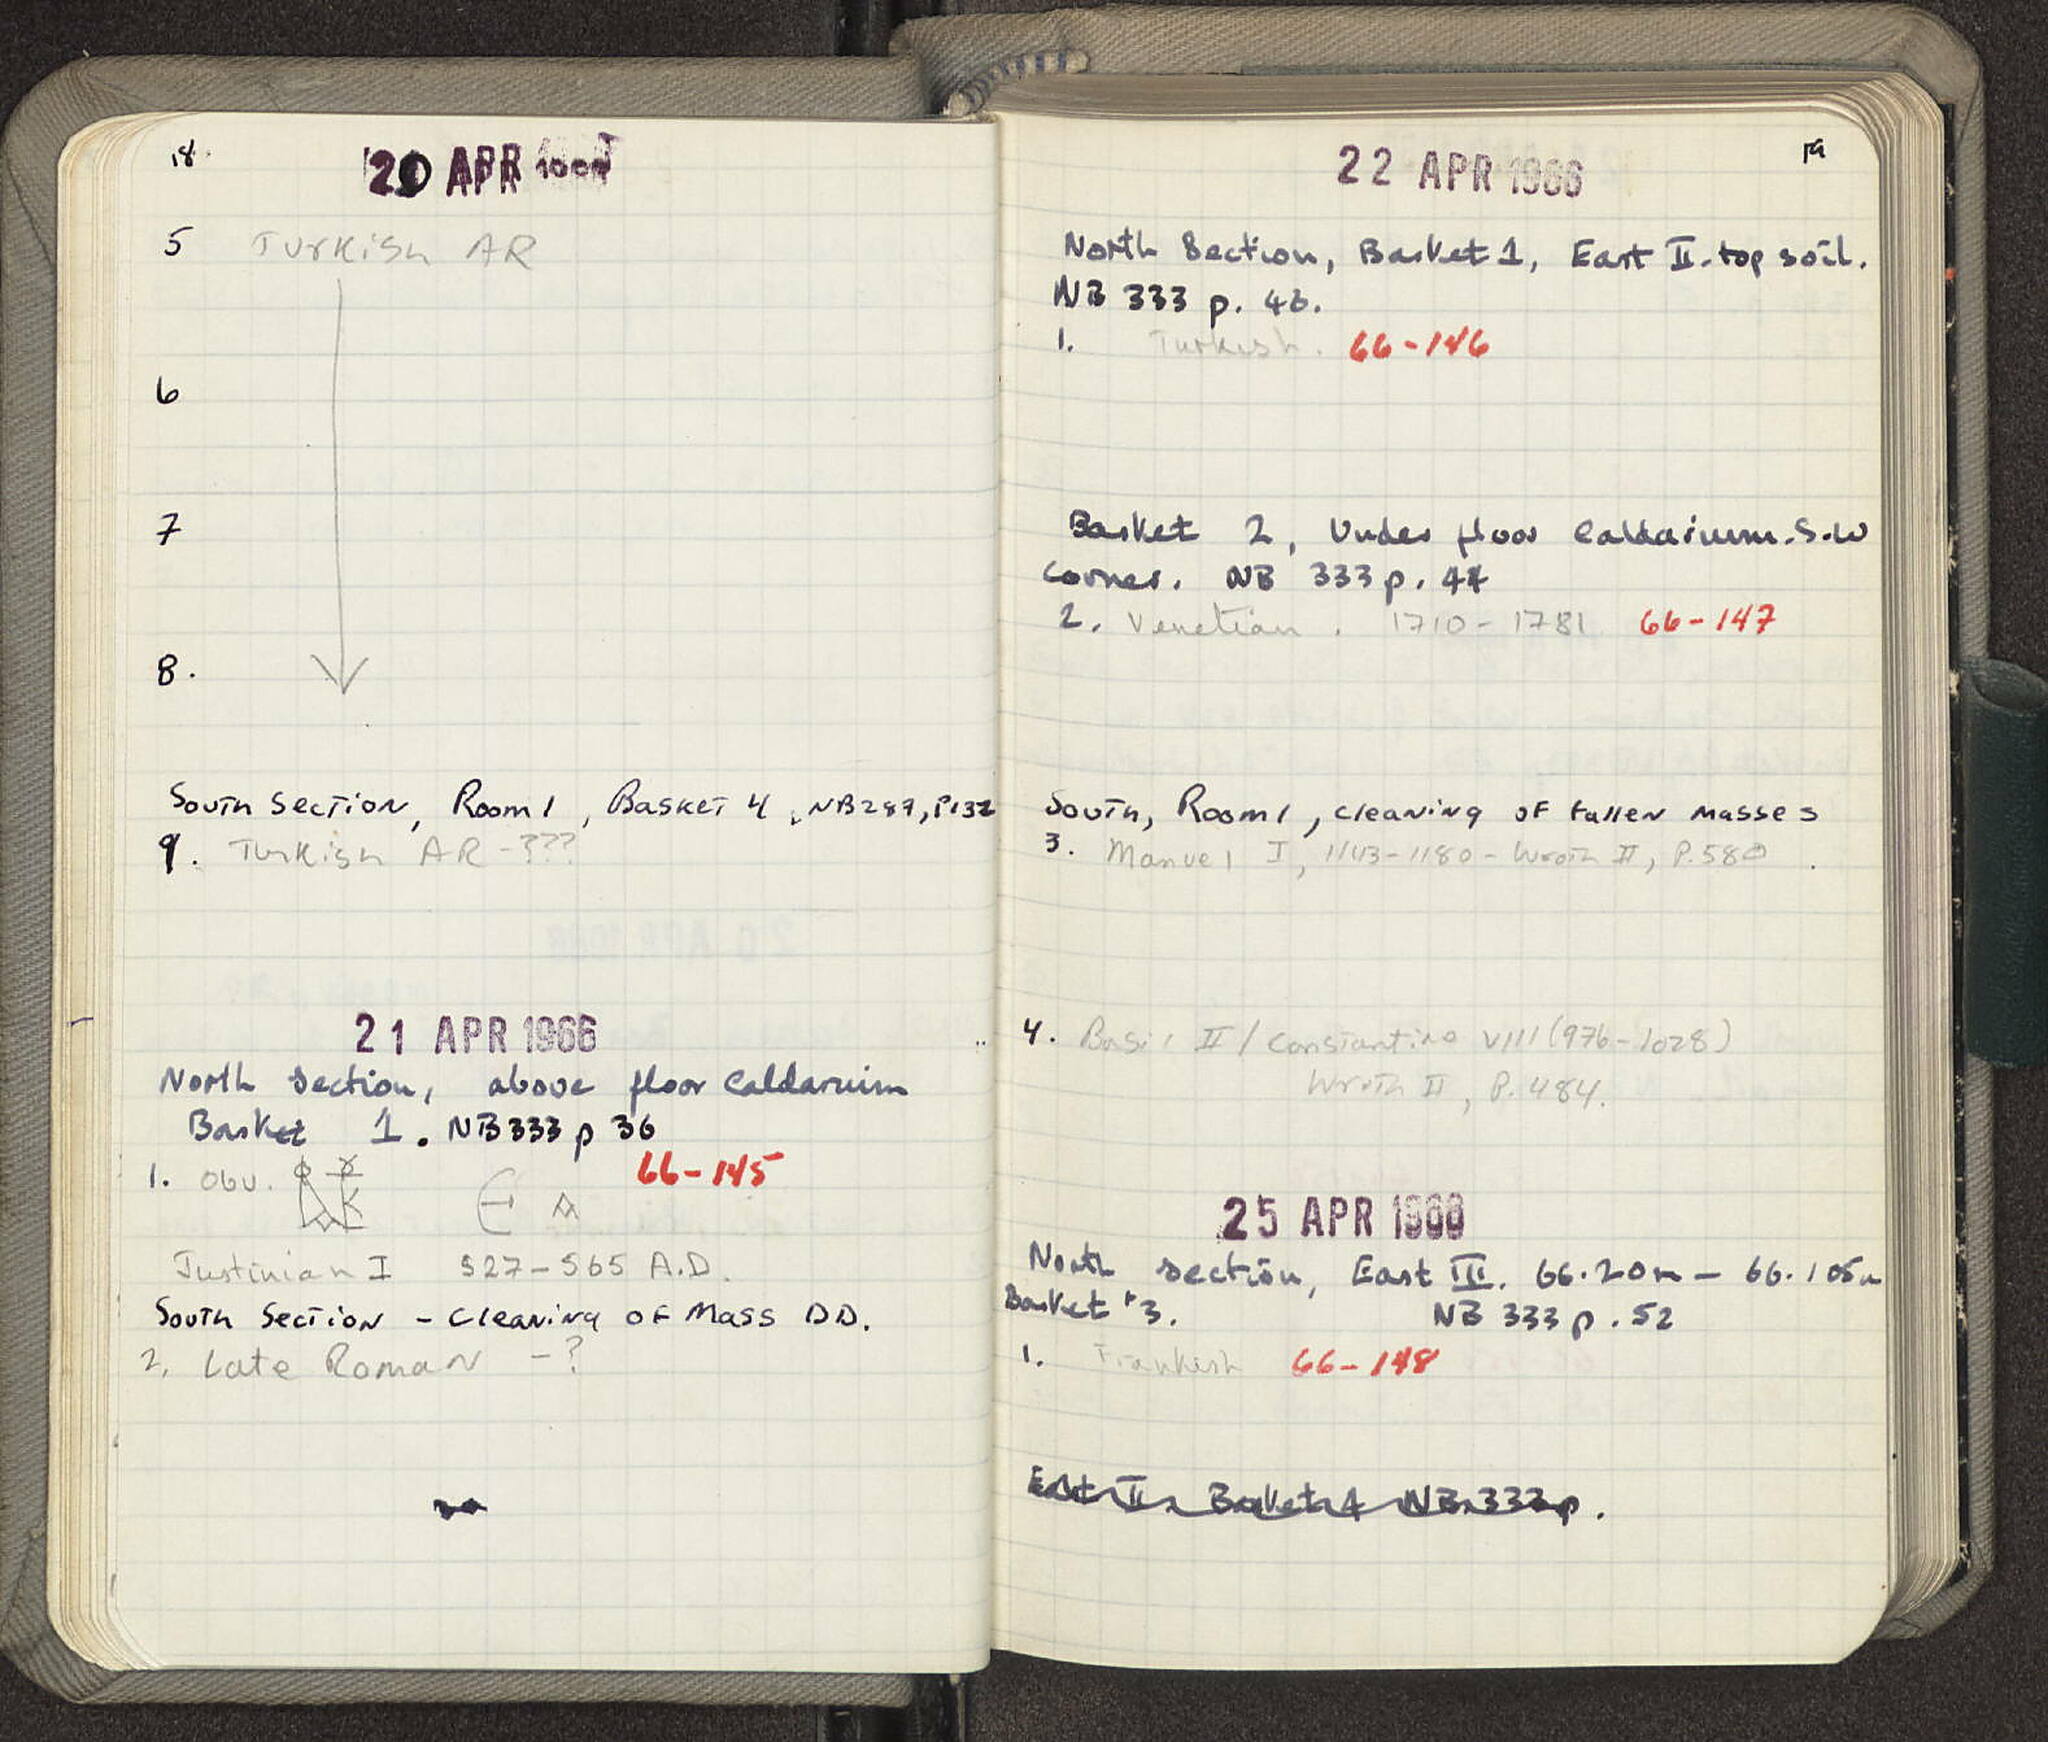 18.
20 APR
5 Turkish AR
6
7
8.
South Section, Room 1, Basket 4, NB287, P132
9. Turkish AR - ???
21 APR 1966
North Section, above floor Caldaruim
Basket 1. NB333 p 36
1. Obv. 66-145
Justinian I 527-565 A.D.
South Section - Cleaning of Mass DD.
2. Late Roman - ?
19
22 APR 1966
North Section, Basket 1, East II. top soil.
NB 333 p. 43.
1. Turkish. 66-146
Basket 2, Under floor Caldarium. S.W
Corner. NB 333 p. 44
2. Venetian. 1710-1781 66-147
South, Room 1, cleaning of fallen masses
3. Manuel I, 1143-1180 - Wroth II, P.580.
4. Basil II / Constantine VIII (976-1028)
Wroth II, P. 484.
25 APR 1966
North Section, East III. 66.20m - 66.105m
Basket #3. NB 333 p. 52
1. Frankish 66-148
East II. Basket 4 NB. 333 p.